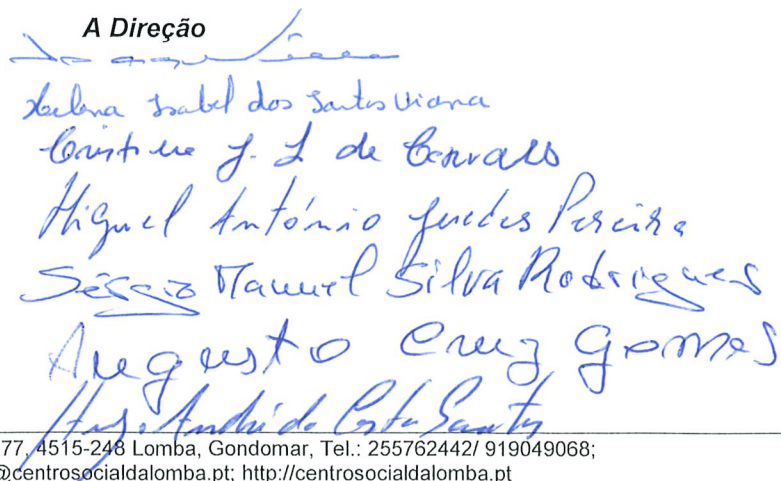 A Direção
Helena Isabel dos Santos Viana
Cristina J. L. de Carvalho
Miguel António Guedes Pereira
Sérgio Manuel Silva Rodrigues
Augusto Cruz Gomes
Hugo André da Costa Santos
77, 4515-248 Lomba, Gondomar, Tel.: 255762442/ 919049068;
@centrosocialdalomba.pt; http://centrosocialdalomba.pt